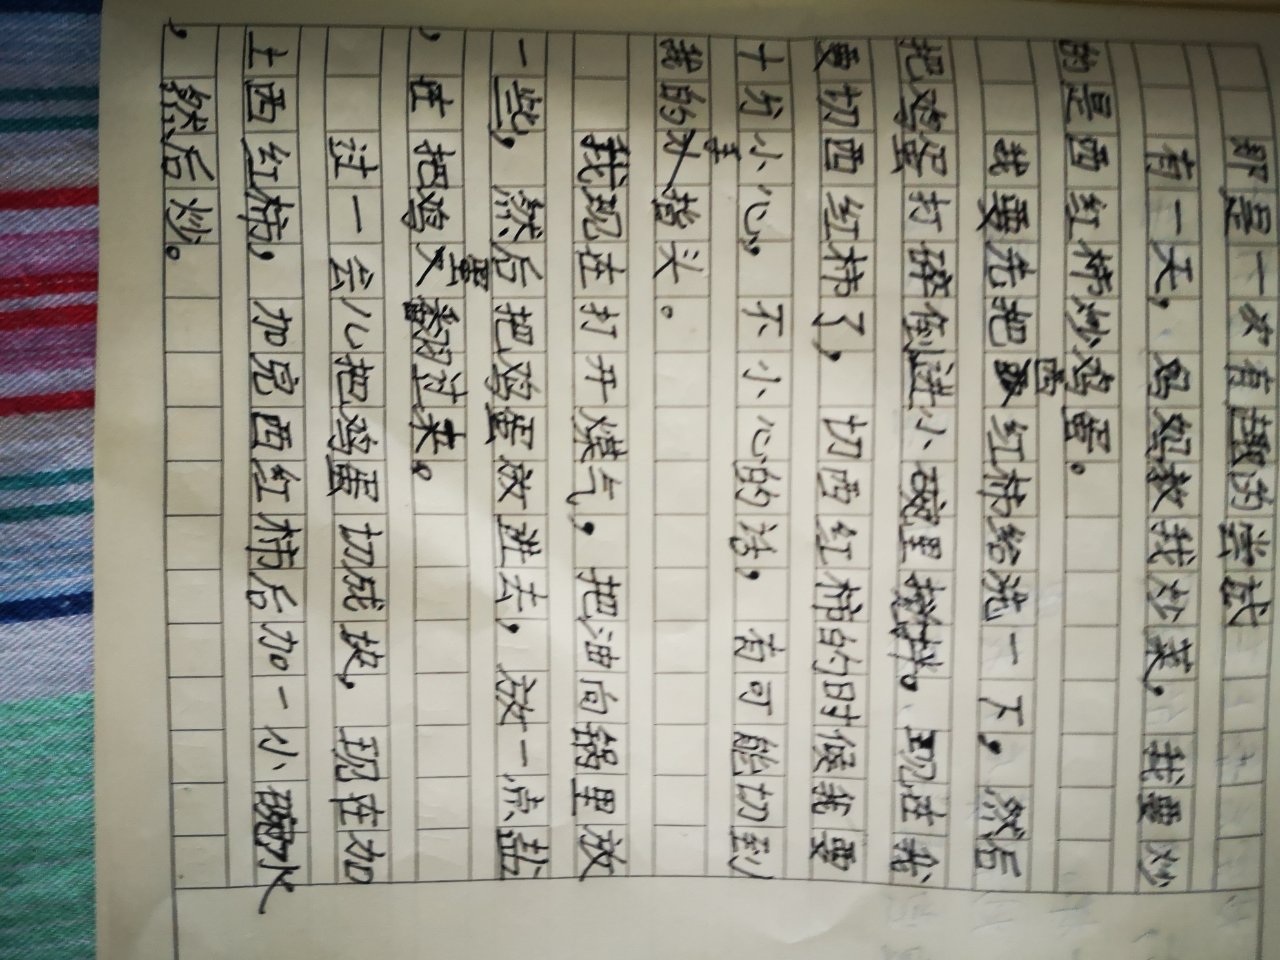 那是一次有趣的尝试
有一天，妈妈教我炒菜，我要炒
的是西红柿炒鸡蛋。
我要先把西红柿给洗一下，然后
把鸡蛋打碎倒进小碗里搅拌。现在我
要切西红柿了，切西红柿的时候我要
十分小心，不小心的话，有可能切到
我的手指头。
我现在打开煤气，把油向锅里放
一些，然后把鸡蛋放进去，放一点盐
，在把鸡蛋翻过来。
过一会儿把鸡蛋切成块，现在加
上西红柿，加完西红柿后加一小碗水
，然后炒。